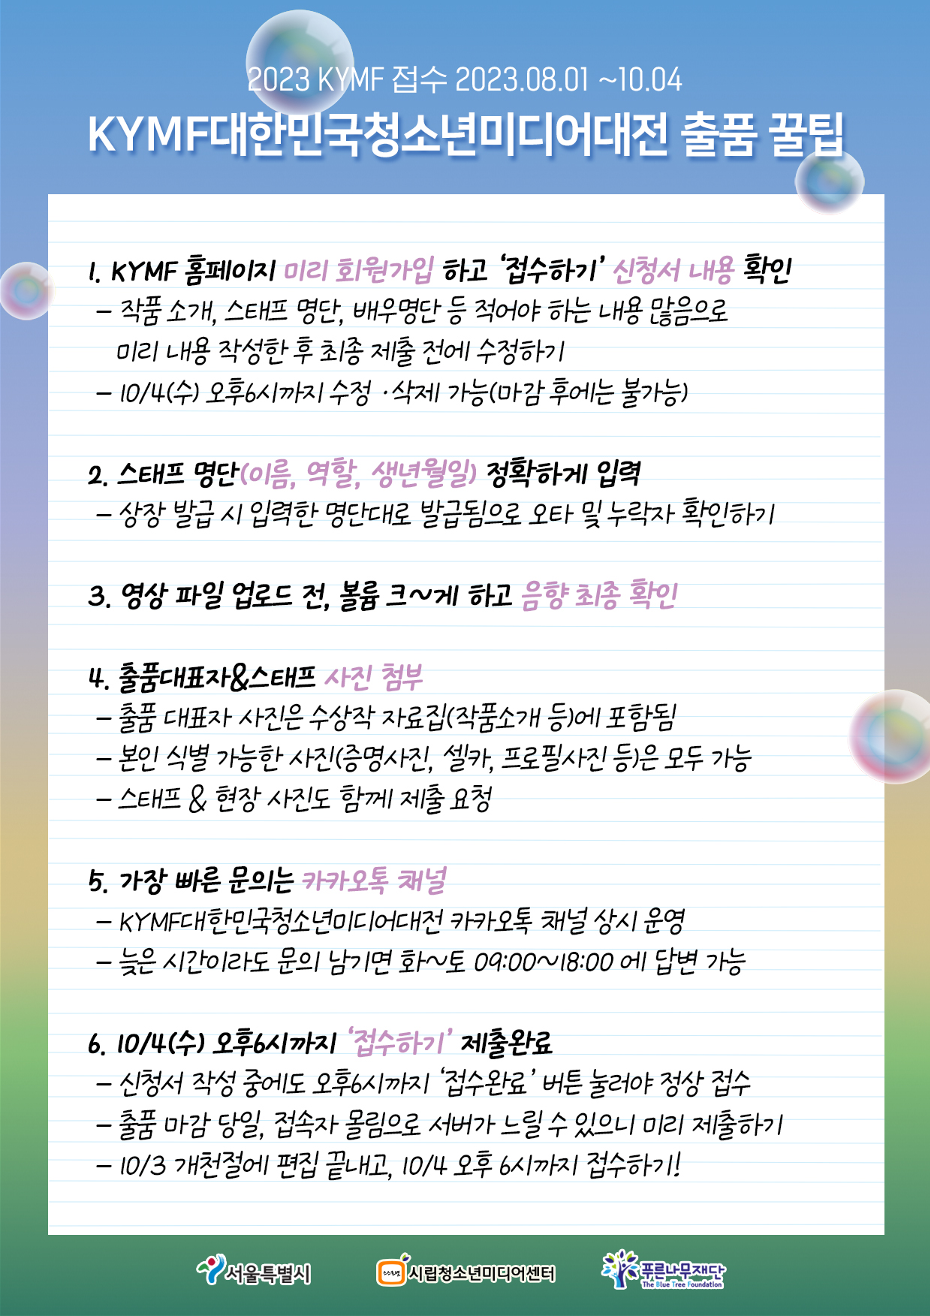 2023 KYMF 접수 2023.08.01 ~10.04
KYMF대한민국청소년미디어대전 출품 꿀팁
1. KYMF 홈페이지 미리 회원가입 하고 ‘접수하기’ 신청서 내용 확인
– 작품 소개, 스태프 명단, 배우명단 등 적어야 하는 내용 많음으로
미리 내용 작성한 후 최종 제출 전에 수정하기
– 10/4(수) 오후6시까지 수정 ·삭제 가능(마감 후에는 불가능)
2. 스태프 명단(이름, 역할, 생년월일) 정확하게 입력
– 상장 발급 시 입력한 명단대로 발급됨으로 오타 및 누락자 확인하기
3. 영상 파일 업로드 전, 볼륨 크~게 하고 음향 최종 확인
4. 출품대표자&스태프 사진 첨부
– 출품 대표자 사진은 수상작 자료집(작품소개 등)에 포함됨
– 본인 식별 가능한 사진(증명사진, 셀카, 프로필사진 등)은 모두 가능
– 스태프 & 현장 사진도 함께 제출 요청
5. 가장 빠른 문의는 카카오톡 채널
– KYMF대한민국청소년미디어대전 카카오톡 채널 상시 운영
– 늦은 시간이라도 문의 남기면 화~토 09:00~18:00 에 답변 가능
6. 10/4(수) 오후6시까지 ‘접수하기’ 제출완료
– 신청서 작성 중에도 오후6시까지 ‘접수완료’ 버튼 눌러야 정상 접수
– 출품 마감 당일, 접속자 몰림으로 서버가 느릴 수 있으니 미리 제출하기
– 10/3 개천절에 편집 끝내고, 10/4 오후 6시까지 접수하기!
서울특별시
시립청소년미디어센터
푸른나무재단
The Blue Tree Foundation